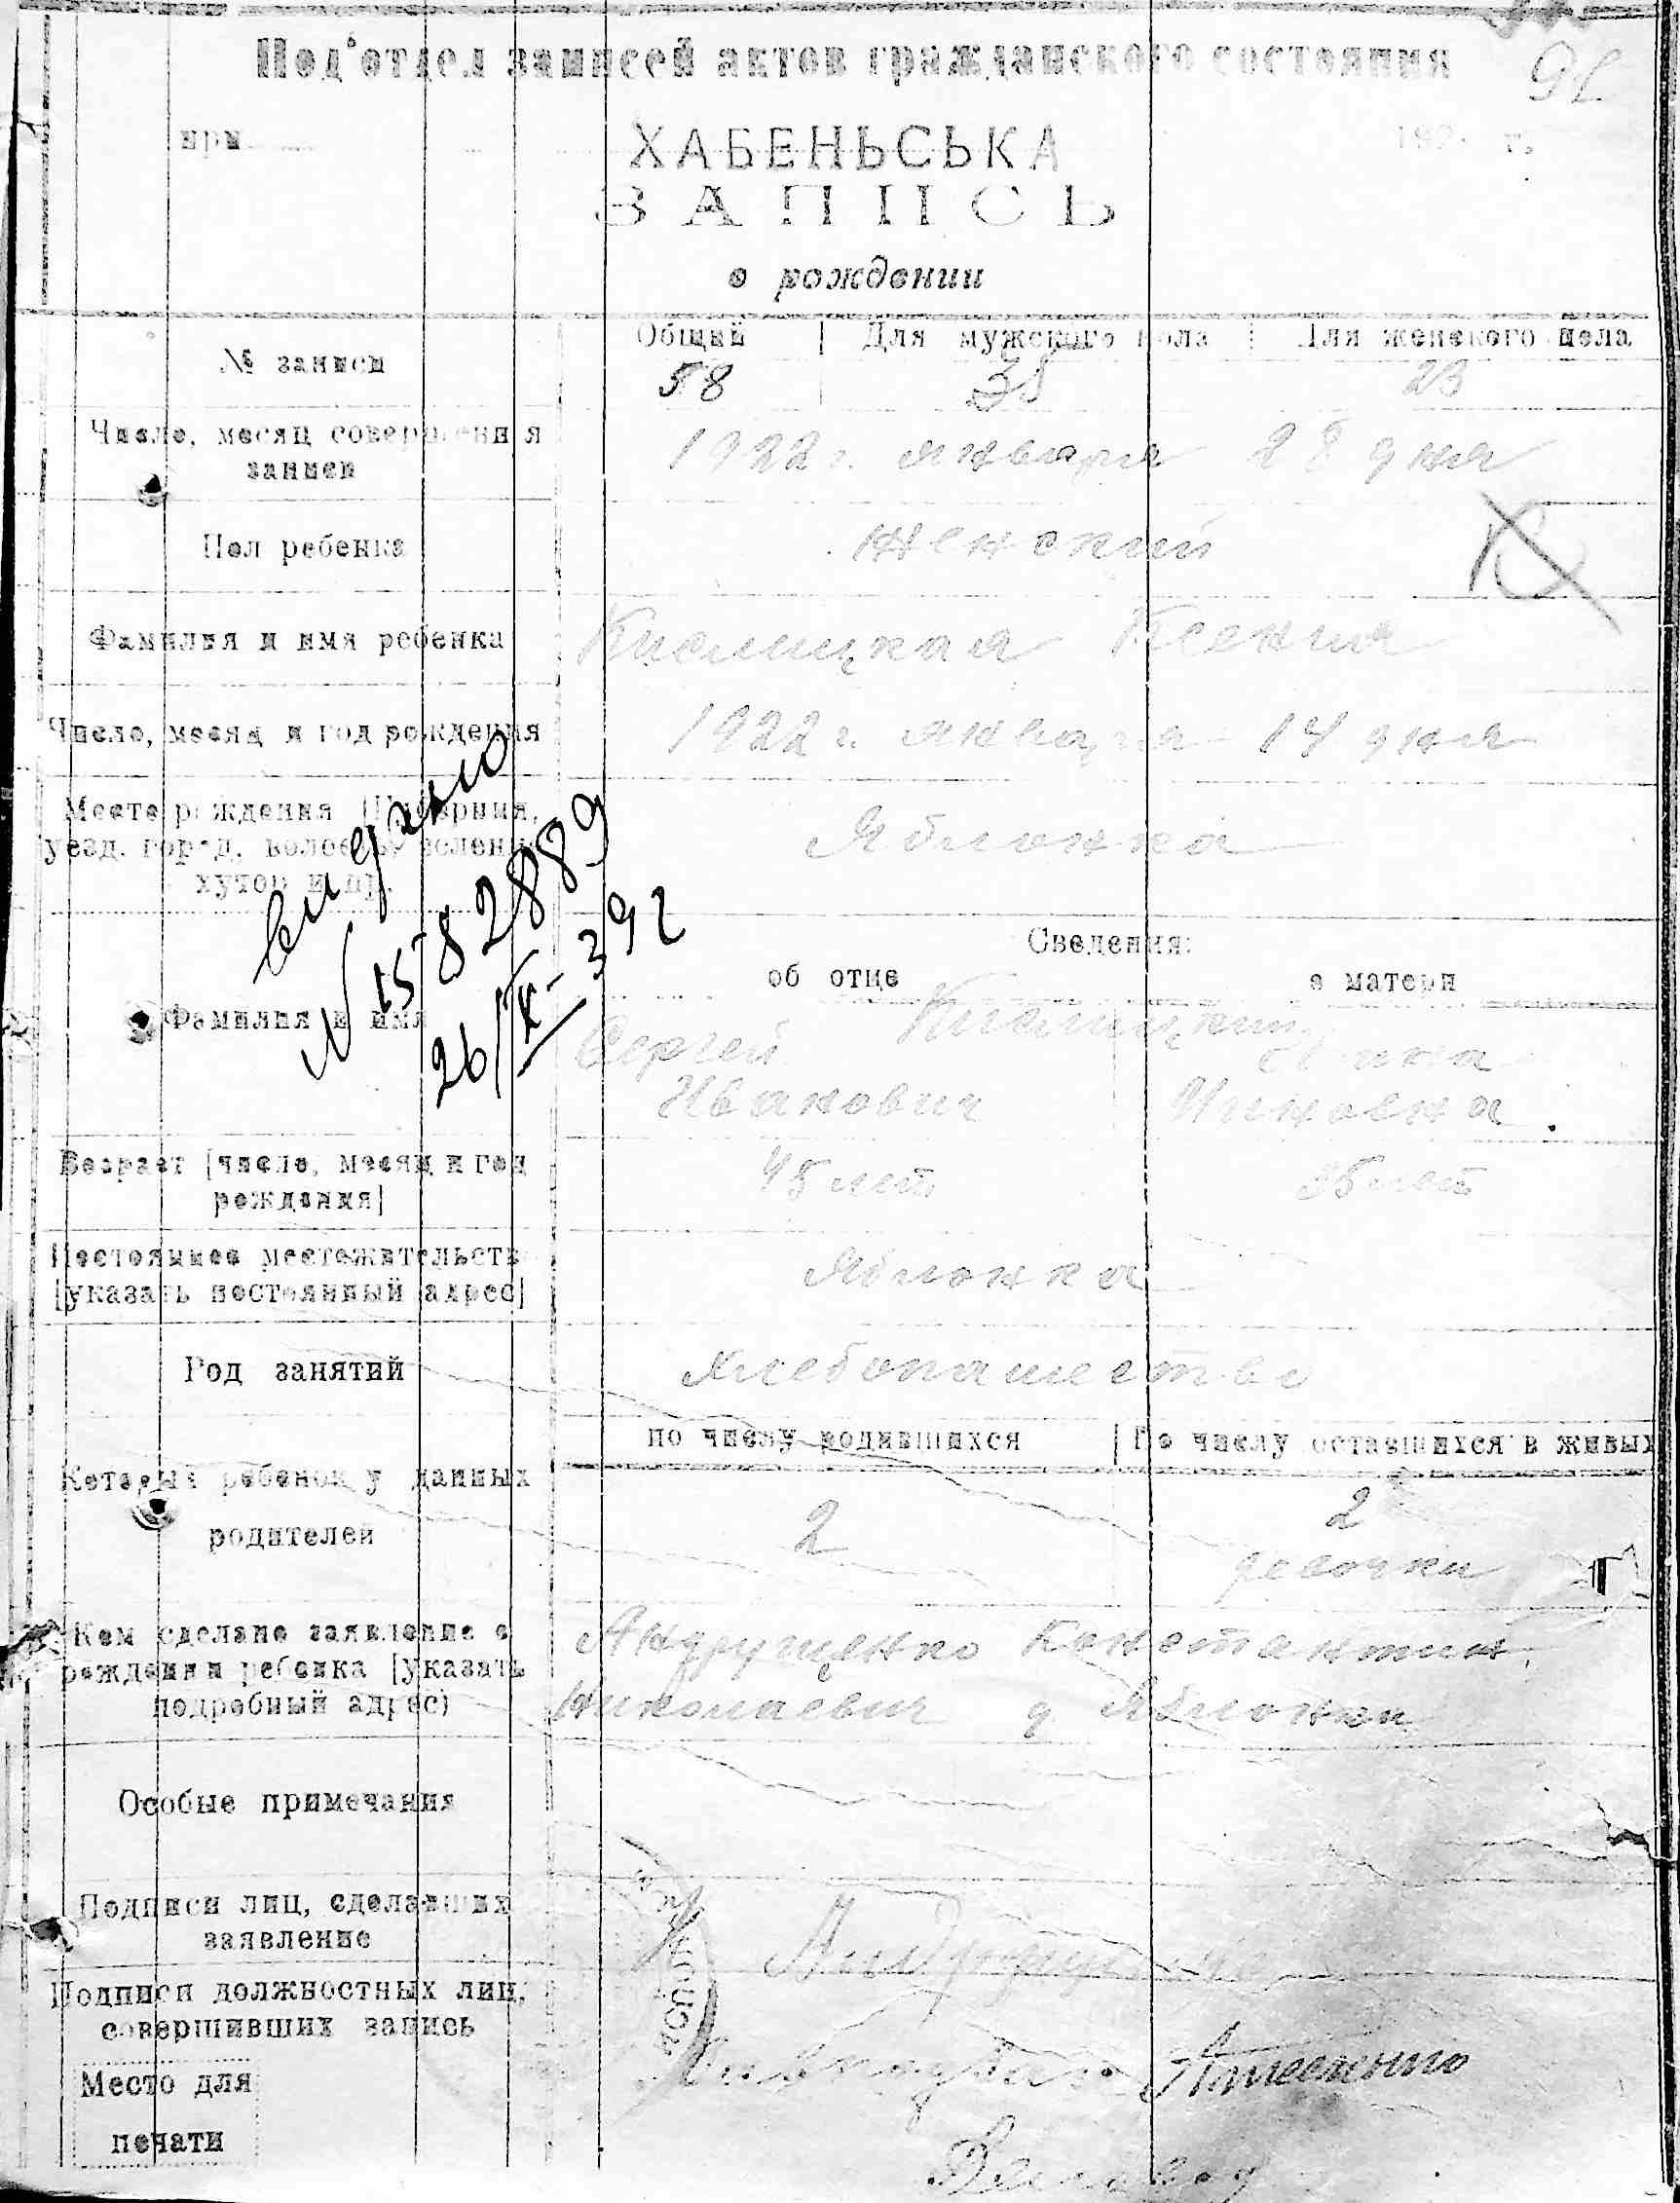 Под'отдел записей актов гражданского состояния
при 192 г.
ХАБЕНЬСЬКА
ЗАПИСЬ
о рождении
№ записи
Общий Для мужского пола Для женского пола
58 35 23
Число, месяц совершения
записи
1922 г. января 28 дня
Пол ребенка
женский
Фамилия и имя ребенка
Кислицкая Ксения
Число, месяц и год рождения
1922 г. января 14 дня
Место рождения [Губерния,
уезд, город, волость, селение
хутор и пр.
Яблонка
видано
N 1582889
26/X-392
Сведения:
об отце о матери
Фамилия и имя
Кислицкий
Сергей
Иванович
Возраст [число, месяц и год
рождения]
45 лет 35 лет
Постоянное местожительств
[указать постоянный адрес]
Яблонка
Род занятий
хлебопашество
по числу родившихся По числу оставшихся в живых
Который ребенок у данных
родителей
2 2
девочки
Кем сделано заявление о
рождении ребенка [указать
подробный адрес)
Андрущенко Константин
Николаевич д Яблонки
Особые примечания
Подписи лиц, сделавших
заявление
Подписи должностных лиц,
совершивших запись
Место для
печати